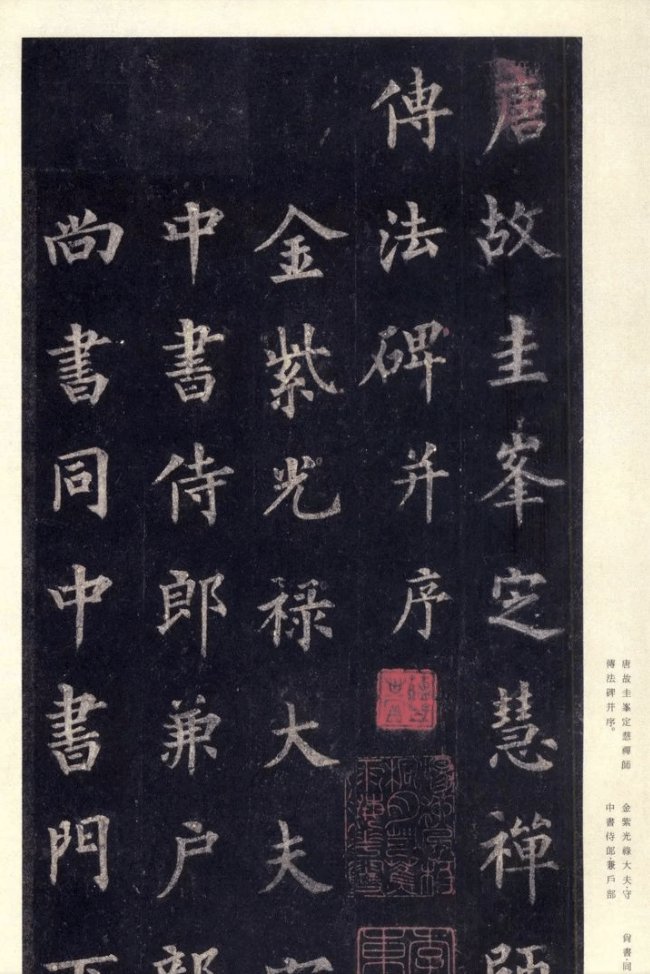 唐故圭峯定慧禪師
傳法碑并序
金紫光祿大夫守
中書侍郎兼户部
尚書同中書門下
唐故圭峯定慧禪師
傳法碑并序。
金紫光祿大夫·守
中書侍郎·兼戶部
尚書·同